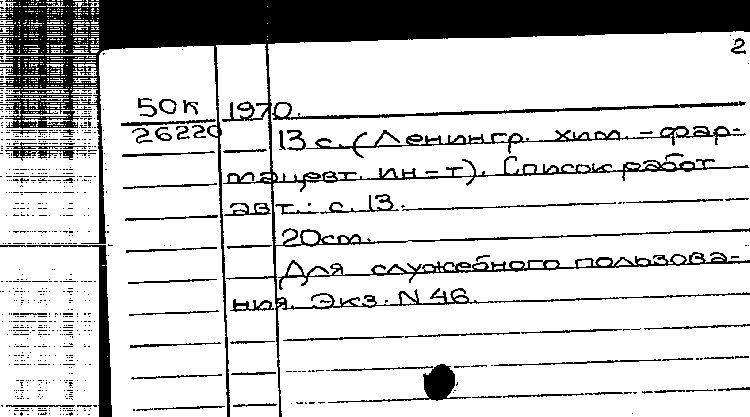 2
50К 1970.
26220 13 с. (Ленингр. хим.-фар-
мацевт. ин-т). Список работ
авт.: с. 13.
20см.
Для служебного пользова-
ния. Экз. N 46.